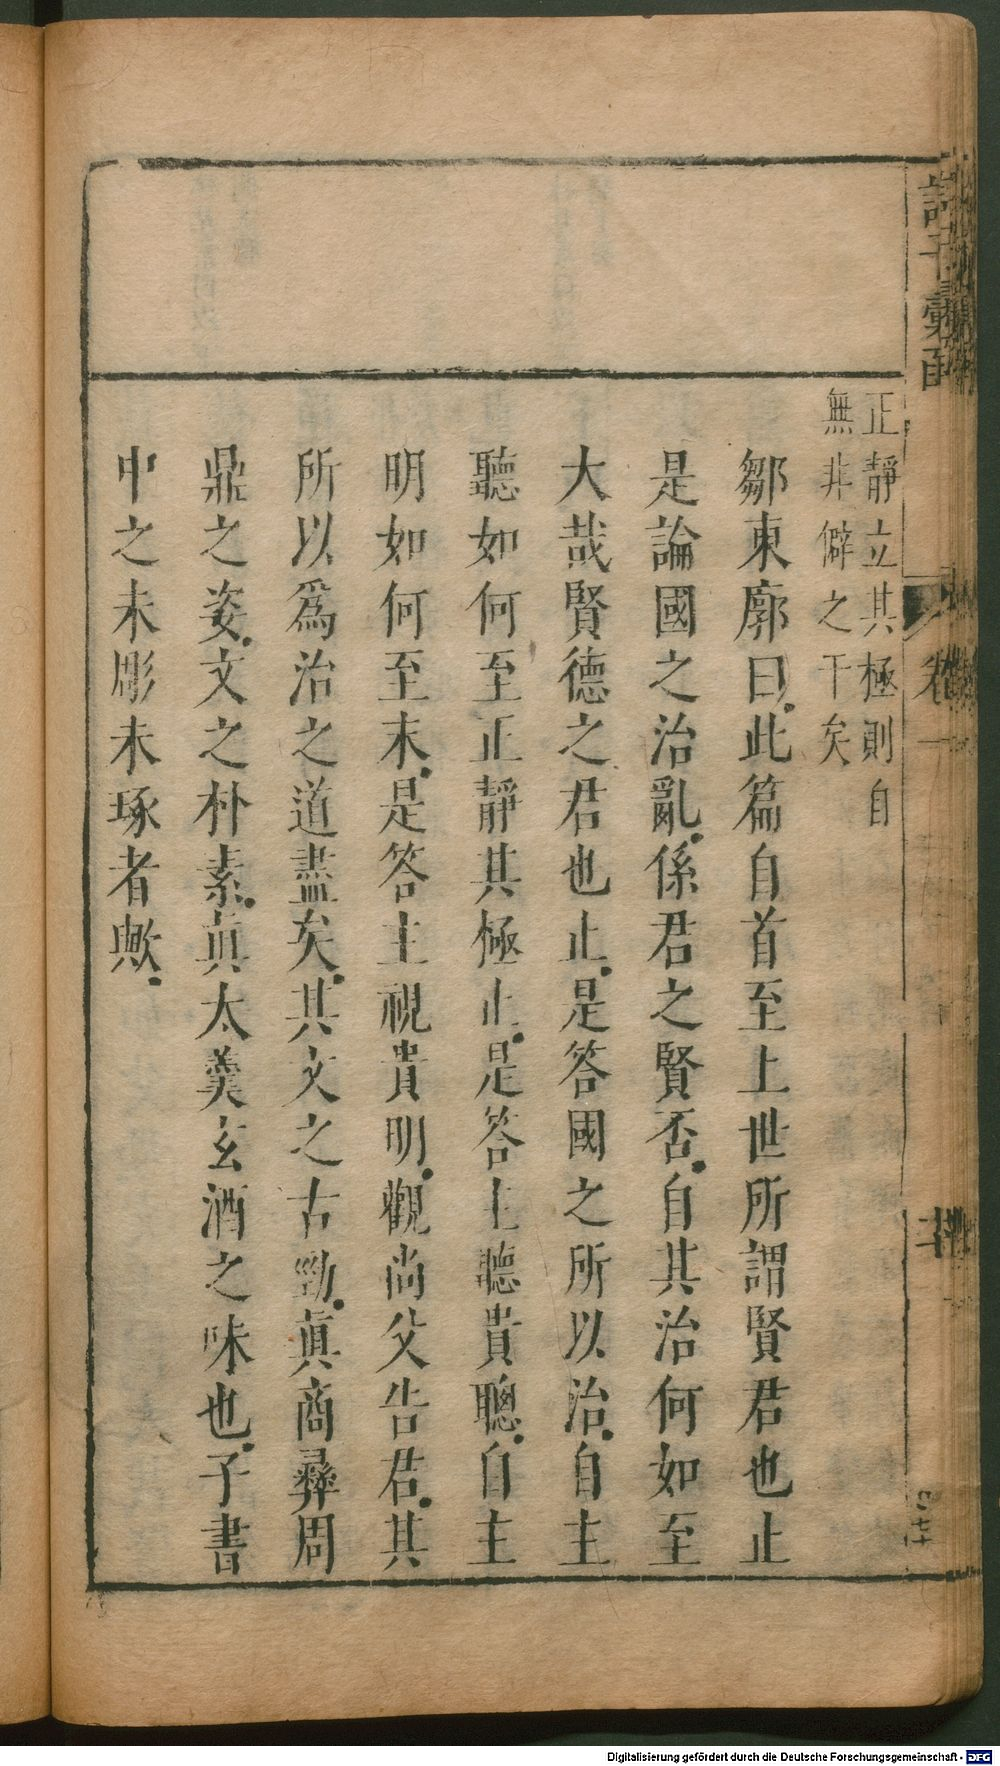 正靜立其極則自
無非僻之干矣
鄒東廓曰此篇自首至上世所謂賢君也止
是論國之治亂係君之賢否自其治何如至
大哉賢德之君也止是答國之所以治自主
聽如何至正靜其極止是答主聽貴聰自主
明如何至末是答主視貴明觀尚父告君其
所以爲治之道盡矣其文之古勁真商彞周
鼎之姿文之朴素真太羹玄酒之味也子書
中之未彫未琢者歟
卷一
Digitalisierung gefördert durch die Deutsche Forschungsgemeinschaft - DFG